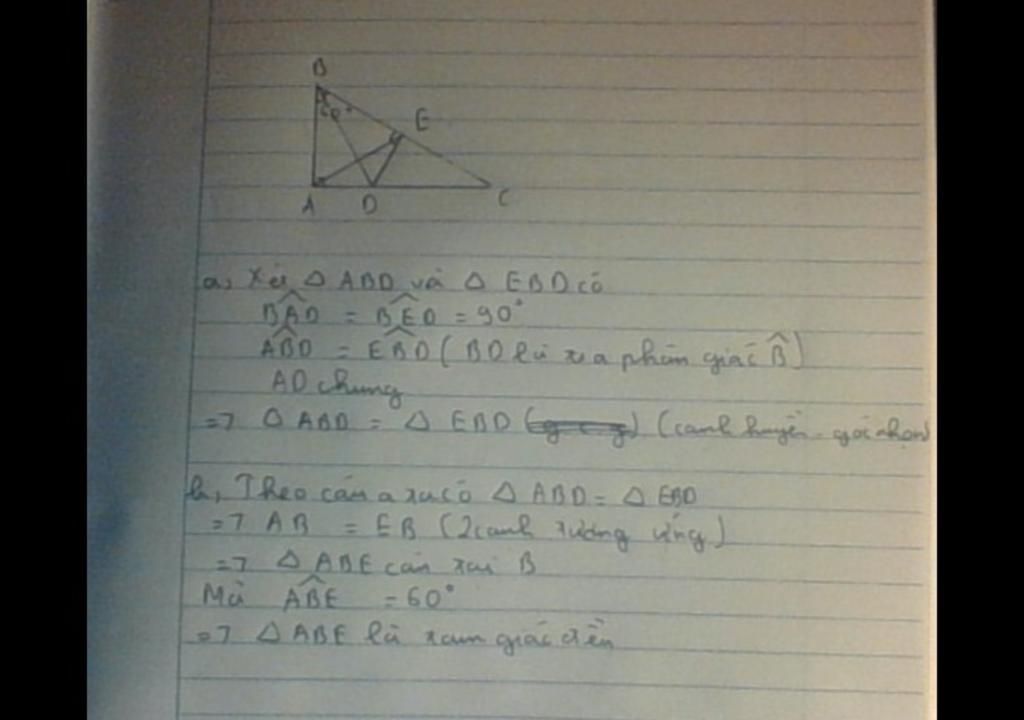 B
60°
E
A D C
a, Xét Δ ABD và Δ EBD có
BAD = BED = 90°
ABD = EBD ( BD là tia phân giác B)
AD chung
=> Δ ABD = Δ EBD (g c g) (cạnh huyền - góc nhọn)
b, Theo câu a ta có Δ ABD = Δ EBD
=> AB = EB (2 cạnh tương ứng)
=> Δ ABE cân tại B
Mà ABE = 60°
=> Δ ABE là tam giác đều